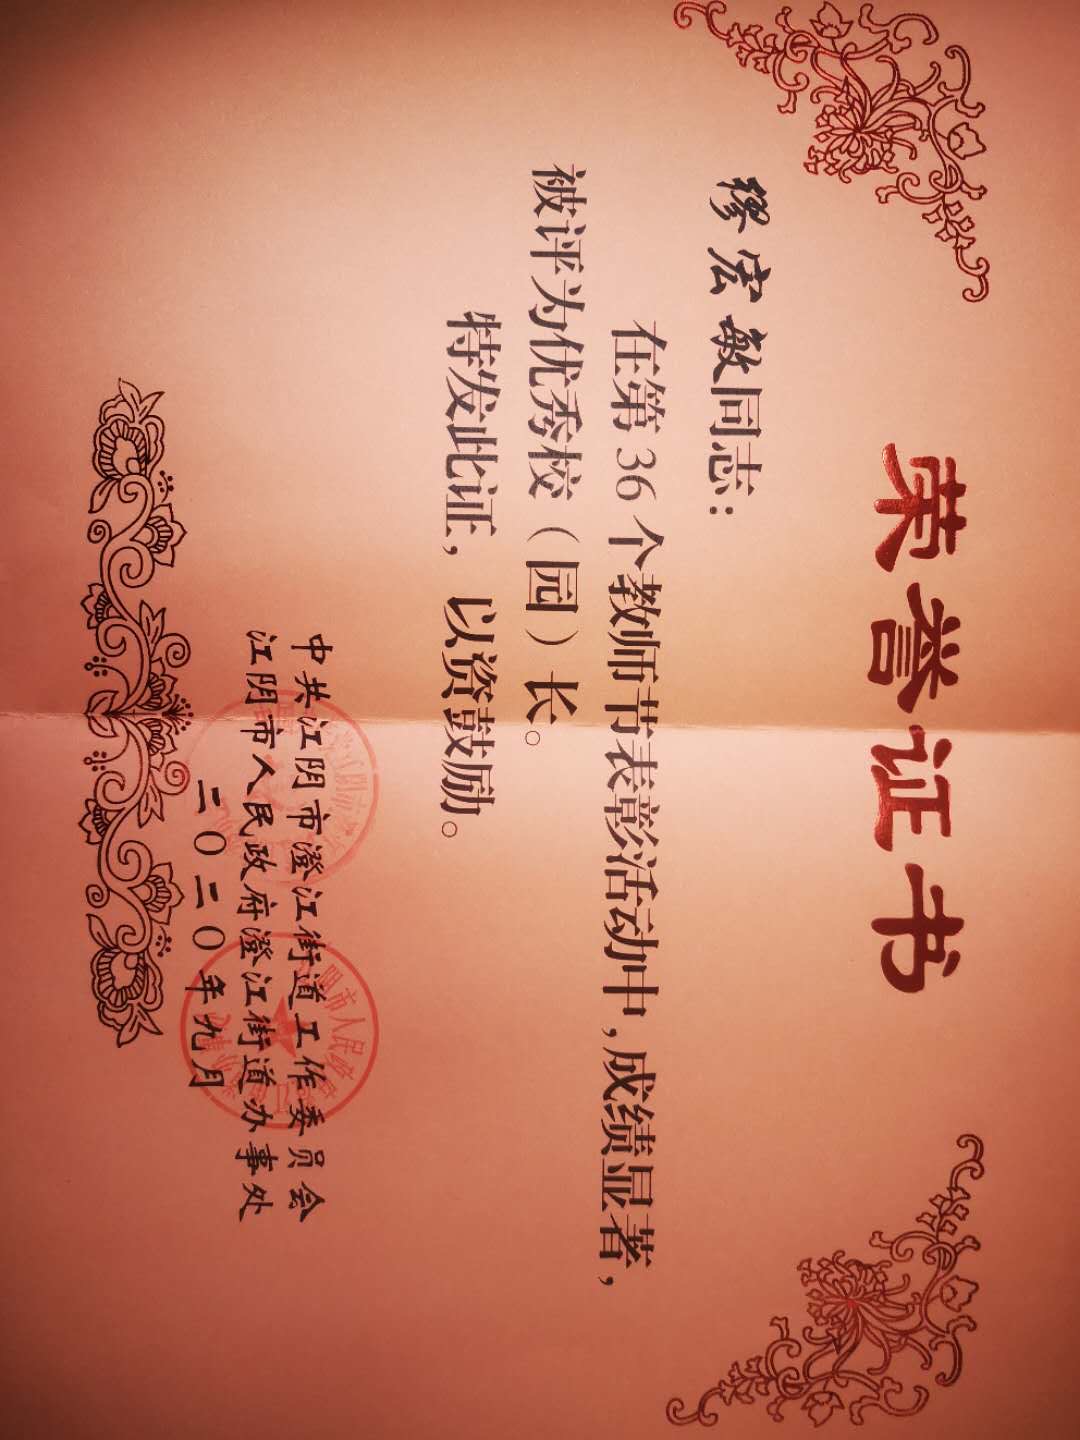 荣誉证书
缪宏敏同志：
在第36个教师节表彰活动中，成绩显著，
被评为优秀校（园）长。
特发此证，以资鼓励。
中共江阴市澄江街道工作委员会
江阴市人民政府澄江街道办事处
二〇二〇年九月